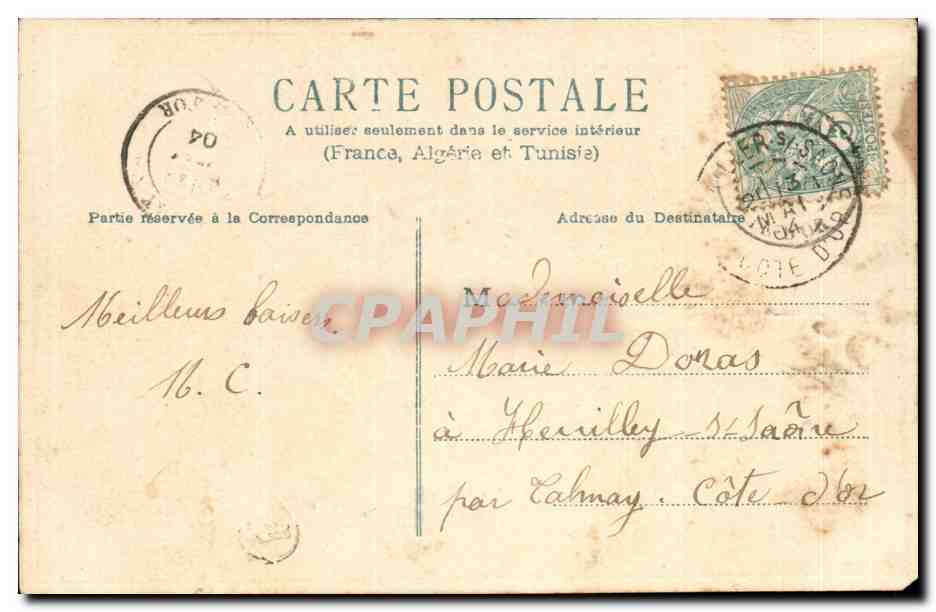 CARTE POSTALE
A utiliser seulement dans le service intérieur
(France, Algérie et Tunisie)
D'OR
04
Partie réservée à la Correspondance
Adresse du Destinataire
MAI
04
COTE D'OR
Meilleurs baisers
M. C.
Mademoiselle
Marie Doras
à Heuilley s-Saône
par Talmay. Côte d'or
CPAPHIL